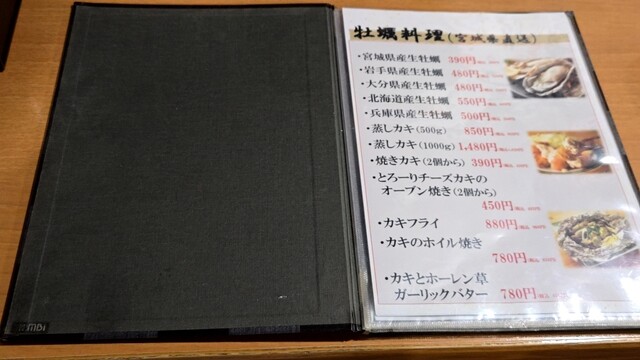 牡蠣料理(宮城県直送)
・宮城県産生牡蠣 390円
・岩手県産生牡蠣 480円
・大分県産生牡蠣 480円
・北海道産生牡蠣 550円
・兵庫県産生牡蠣 500円
・蒸しカキ(500g) 850円
・蒸しカキ(1000g) 1,480円
・焼きカキ(2個から) 390円
・とろーりチーズカキの
オーブン焼き(2個から)
450円
・カキフライ 880円
・カキのホイル焼き
780円
・カキとホーレン草
ガーリックバター 780円